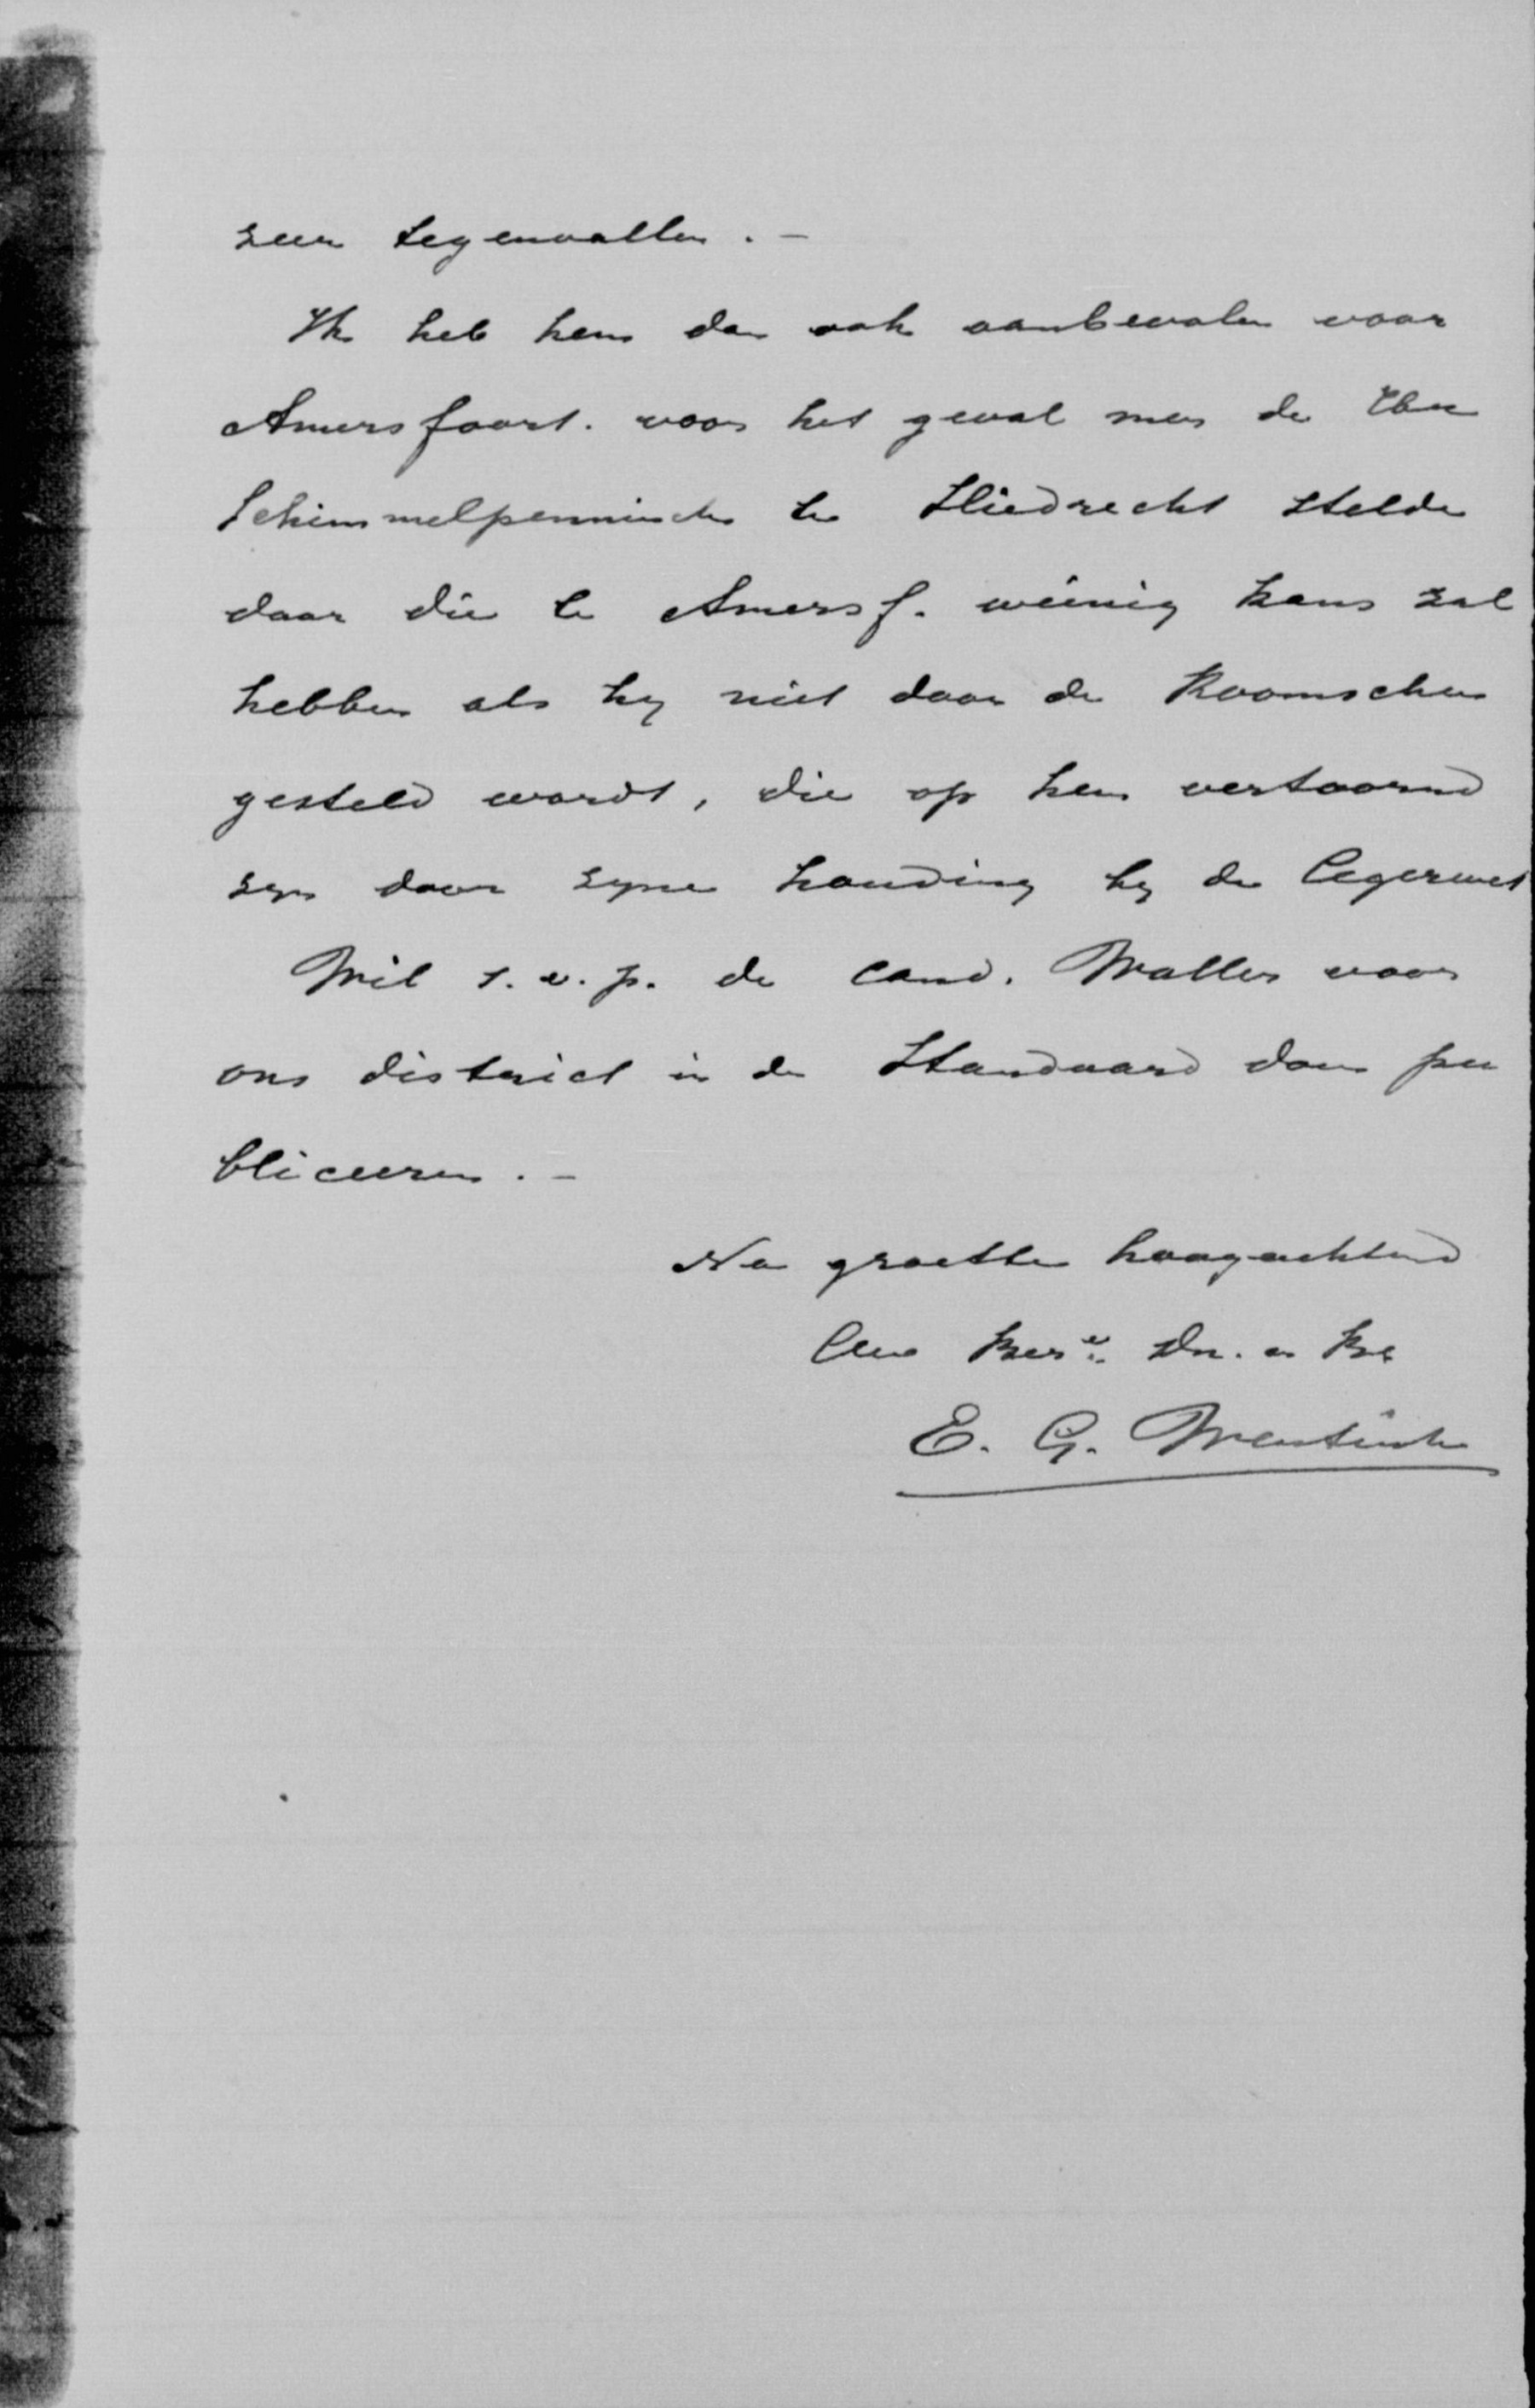 zeer tegenvallen. -
Ik heb hem dan ook aanbevolen voor
Amersfoort. voor het geval men de Heer
Schimmelpenninck te Sliedrecht stelde
daar die te Amersf. weinig kans zal
hebben als hy niet door de Roomschen
gesteld wordt, die op hem vertoornd
zyn door zyne houding by de legerwet
Wil s.v.p. de cand. Waller voor
ons district in de Standaard doen pu
bliceeren. -
Na groete hoogachtend
Uw Dr. en Br
E. G. Wentink